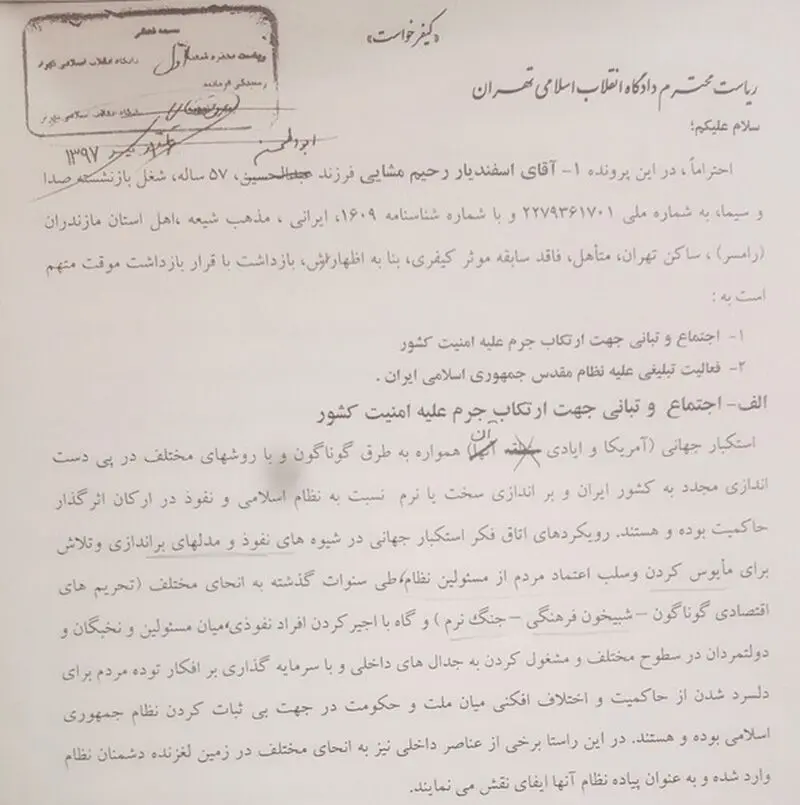 «کیفرخواست»
ریاست محترم شعبه اول دادگاه انقلاب اسلامی تهران
۱۳۹۷
ریاست محترم دادگاه انقلاب اسلامی تهران
سلام علیکم؛
ابوالحسن
احتراماً، در این پرونده ۱- آقای اسفندیار رحیم مشایی فرزند عبدالحسین، ۵۷ ساله، شغل بازنشسته صدا
و سیما، به شماره ملی ۲۲۷۹۳۶۱۷۰۱ و با شماره شناسنامه ۱۶۰۹، ایرانی ، مذهب شیعه ،اهل استان مازندران
(رامسر) ، ساکن تهران، متأهل، فاقد سابقه موثر کیفری، بنا به اظهارش، بازداشت با قرار بازداشت موقت متهم
است به :
۱- اجتماع و تبانی جهت ارتکاب جرم علیه امنیت کشور
۲- فعالیت تبلیغی علیه نظام مقدس جمهوری اسلامی ایران .
الف- اجتماع و تبانی جهت ارتکاب جرم علیه امنیت کشور
استکبار جهانی (آمریکا و ایادی آن) همواره به طرق گوناگون و با روشهای مختلف در پی دست
اندازی مجدد به کشور ایران و بر اندازی سخت یا نرم نسبت به نظام اسلامی و نفوذ در ارکان اثرگذار
حاکمیت بوده و هستند. رویکردهای اتاق فکر استکبار جهانی در شیوه های نفوذ و مدلهای براندازی وتلاش
برای مأیوس کردن وسلب اعتماد مردم از مسئولین نظام، طی سنوات گذشته به انحای مختلف (تحریم های
اقتصادی گوناگون – شبیخون فرهنگی – جنگ نرم ) و گاه با اجیر کردن افراد نفوذی، میان مسئولین و نخبگان و
دولتمردان در سطوح مختلف و مشغول کردن به جدال های داخلی و با سرمایه گذاری بر افکار توده مردم برای
دلسرد شدن از حاکمیت و اختلاف افکنی میان ملت و حکومت در جهت بی ثبات کردن نظام جمهوری
اسلامی بوده و هستند. در این راستا برخی از عناصر داخلی نیز به انحای مختلف در زمین لغزنده دشمنان نظام
وارد شده و به عنوان پیاده نظام آنها ایفای نقش می نمایند.